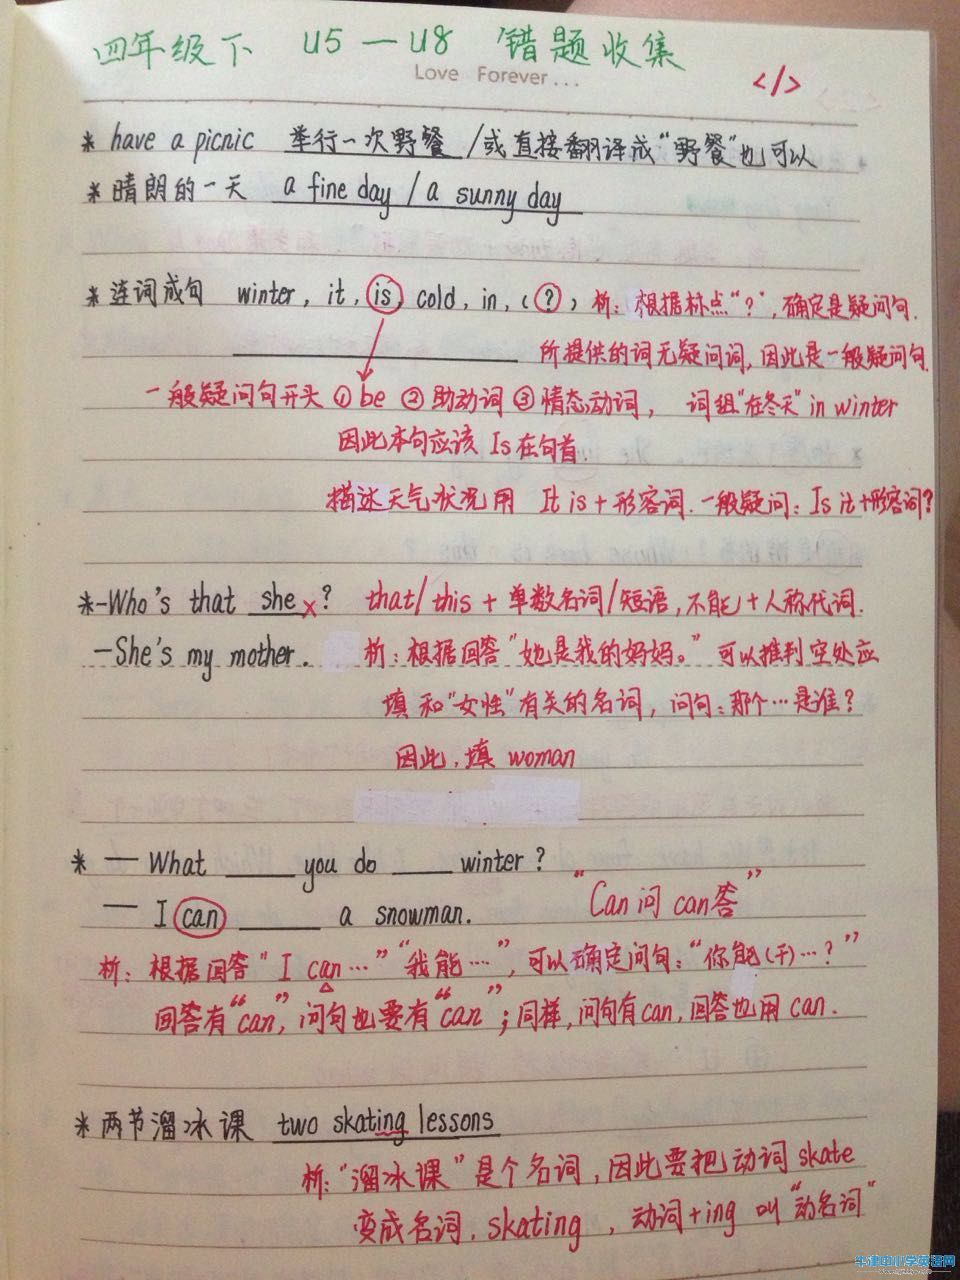 四年级下 U5—U8 错题收集
Love Forever...
</>
* have a picnic 举行一次野餐/或直接翻译成“野餐”也可以
* 晴朗的一天 a fine day / a sunny day
* 连词成句 winter, it, is, cold, in, (?) 析：根据标点“?”，确定是疑问句.
所提供的词无疑问词，因此是一般疑问句.
一般疑问句开头 ①be ②助动词 ③情态动词， 词组“在冬天”in winter
因此本句应该 Is在句首.
描述天气状况用 It is+形容词. 一般疑问：Is it+形容词？
*-Who's that she x? that/this + 单数名词/短语，不能+人称代词.
-She's my mother. 析：根据回答“她是我的妈妈。”可以推判空处应
填和“女性”有关的名词，问句：那个…是谁？
因此，填 woman
* — What ____ you do ____ winter?
— I can _____ a snowman. “Can问 can答”
析：根据回答“I can…”“我能…”，可以确定问句：“你能(干)…？”
回答有“can”，问句也要有“can”；同样，问句有can，回答也用can.
* 两节溜冰课 two skating lessons
析：“溜冰课”是个名词，因此要把动词skate
变成名词，skating，动词+ing 叫“动名词”
牛津中小学英语网